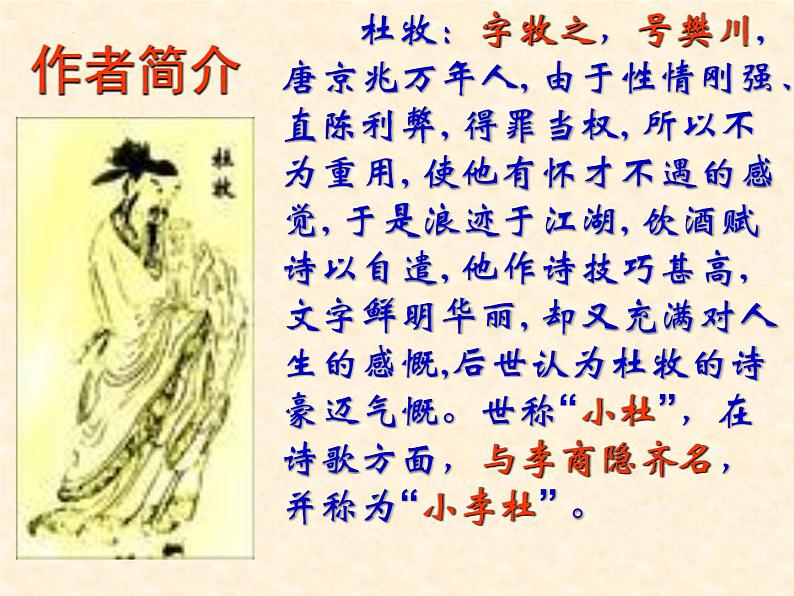 作者简介
杜牧
杜牧：字牧之，号樊川，
唐京兆万年人，由于性情刚强、
直陈利弊，得罪当权，所以不
为重用，使他有怀才不遇的感
觉，于是浪迹于江湖，饮酒赋
诗以自遣，他作诗技巧甚高，
文字鲜明华丽，却又充满对人
生的感慨，后世认为杜牧的诗
豪迈气慨。世称“小杜”，在
诗歌方面，与李商隐齐名，
并称为“小李杜”。